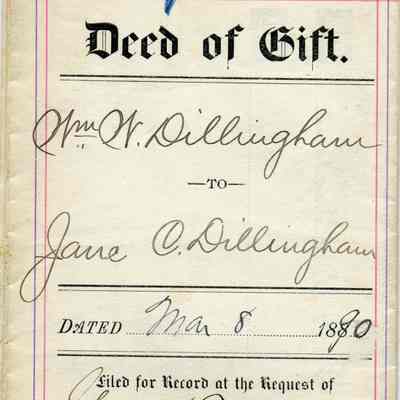 Deed of Gift.
Wm. W. Dillingham
—TO—
Jane C. Dillingham
DATED Mar 8 1890
Filed for Record at the Request of